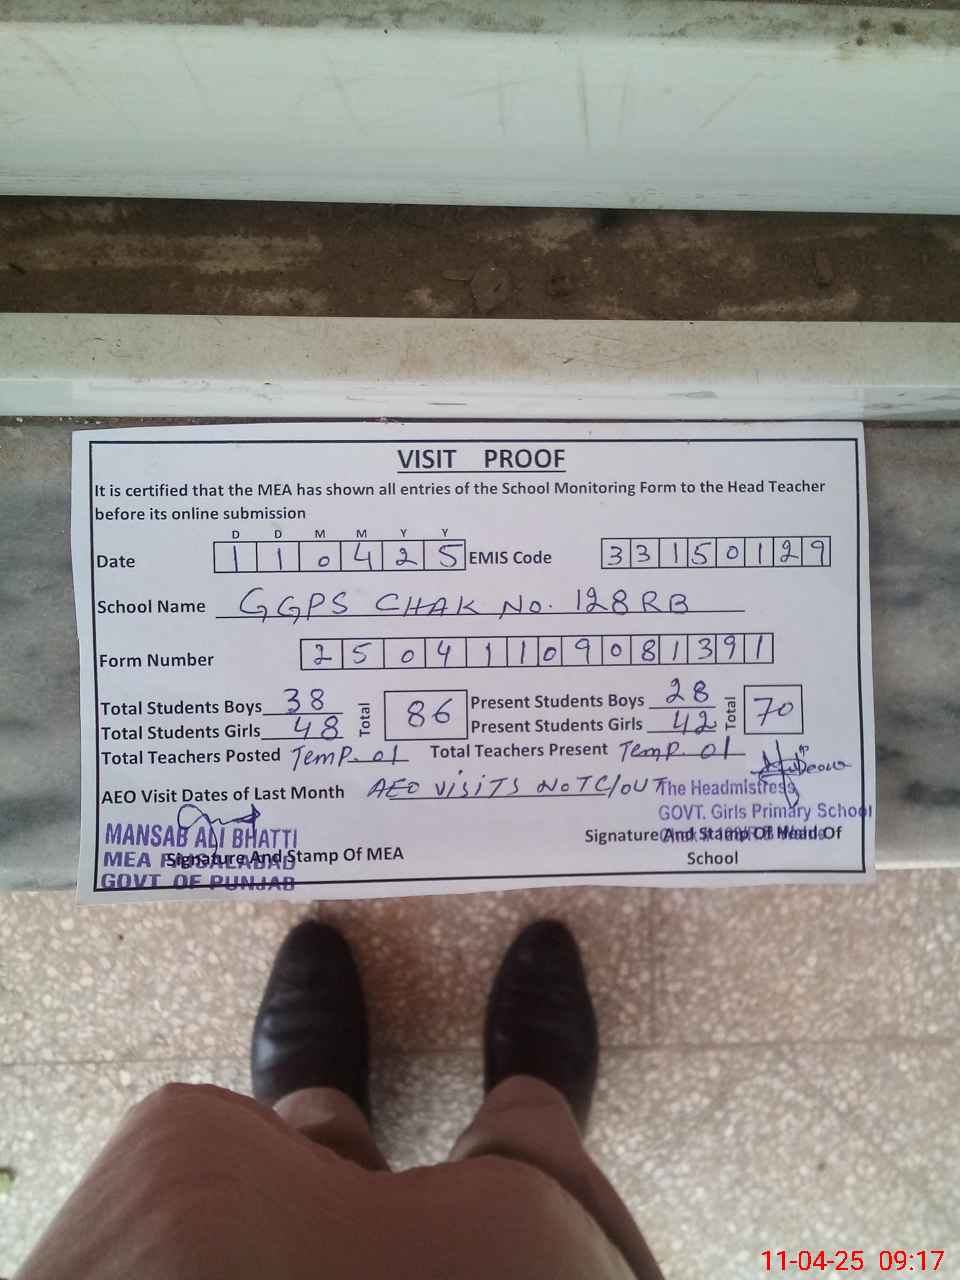 VISIT PROOF
It is certified that the MEA has shown all entries of the School Monitoring Form to the Head Teacher
before its online submission
D D M M Y Y
Date 1 1 0 4 2 5 EMIS Code 3 3 1 5 0 1 2 9
School Name GGPS CHAK No. 128 RB
Form Number 2 5 0 4 1 1 0 9 0 8 1 3 9 1
Total Students Boys 38 Total 86 Present Students Boys 28 Total 70
Total Students Girls 48 Present Students Girls 42
Total Teachers Posted TemP. 01 Total Teachers Present TemP. 01
AEO Visit Dates of Last Month AEO VISITS NOT C/OUT
The Headmistress
GOVT. Girls Primary School
MANSAB ALI BHATTI
MEA FAISALABAD
GOVT OF PUNJAB
Signature And Stamp Of MEA
Signature And Stamp Of Head Of
School
11-04-25 09:17